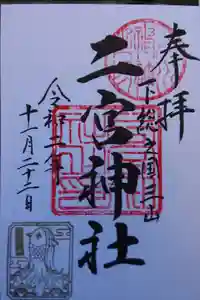 奉拝
下総之国三山
二宮神社
令和二年
十一月二十三日